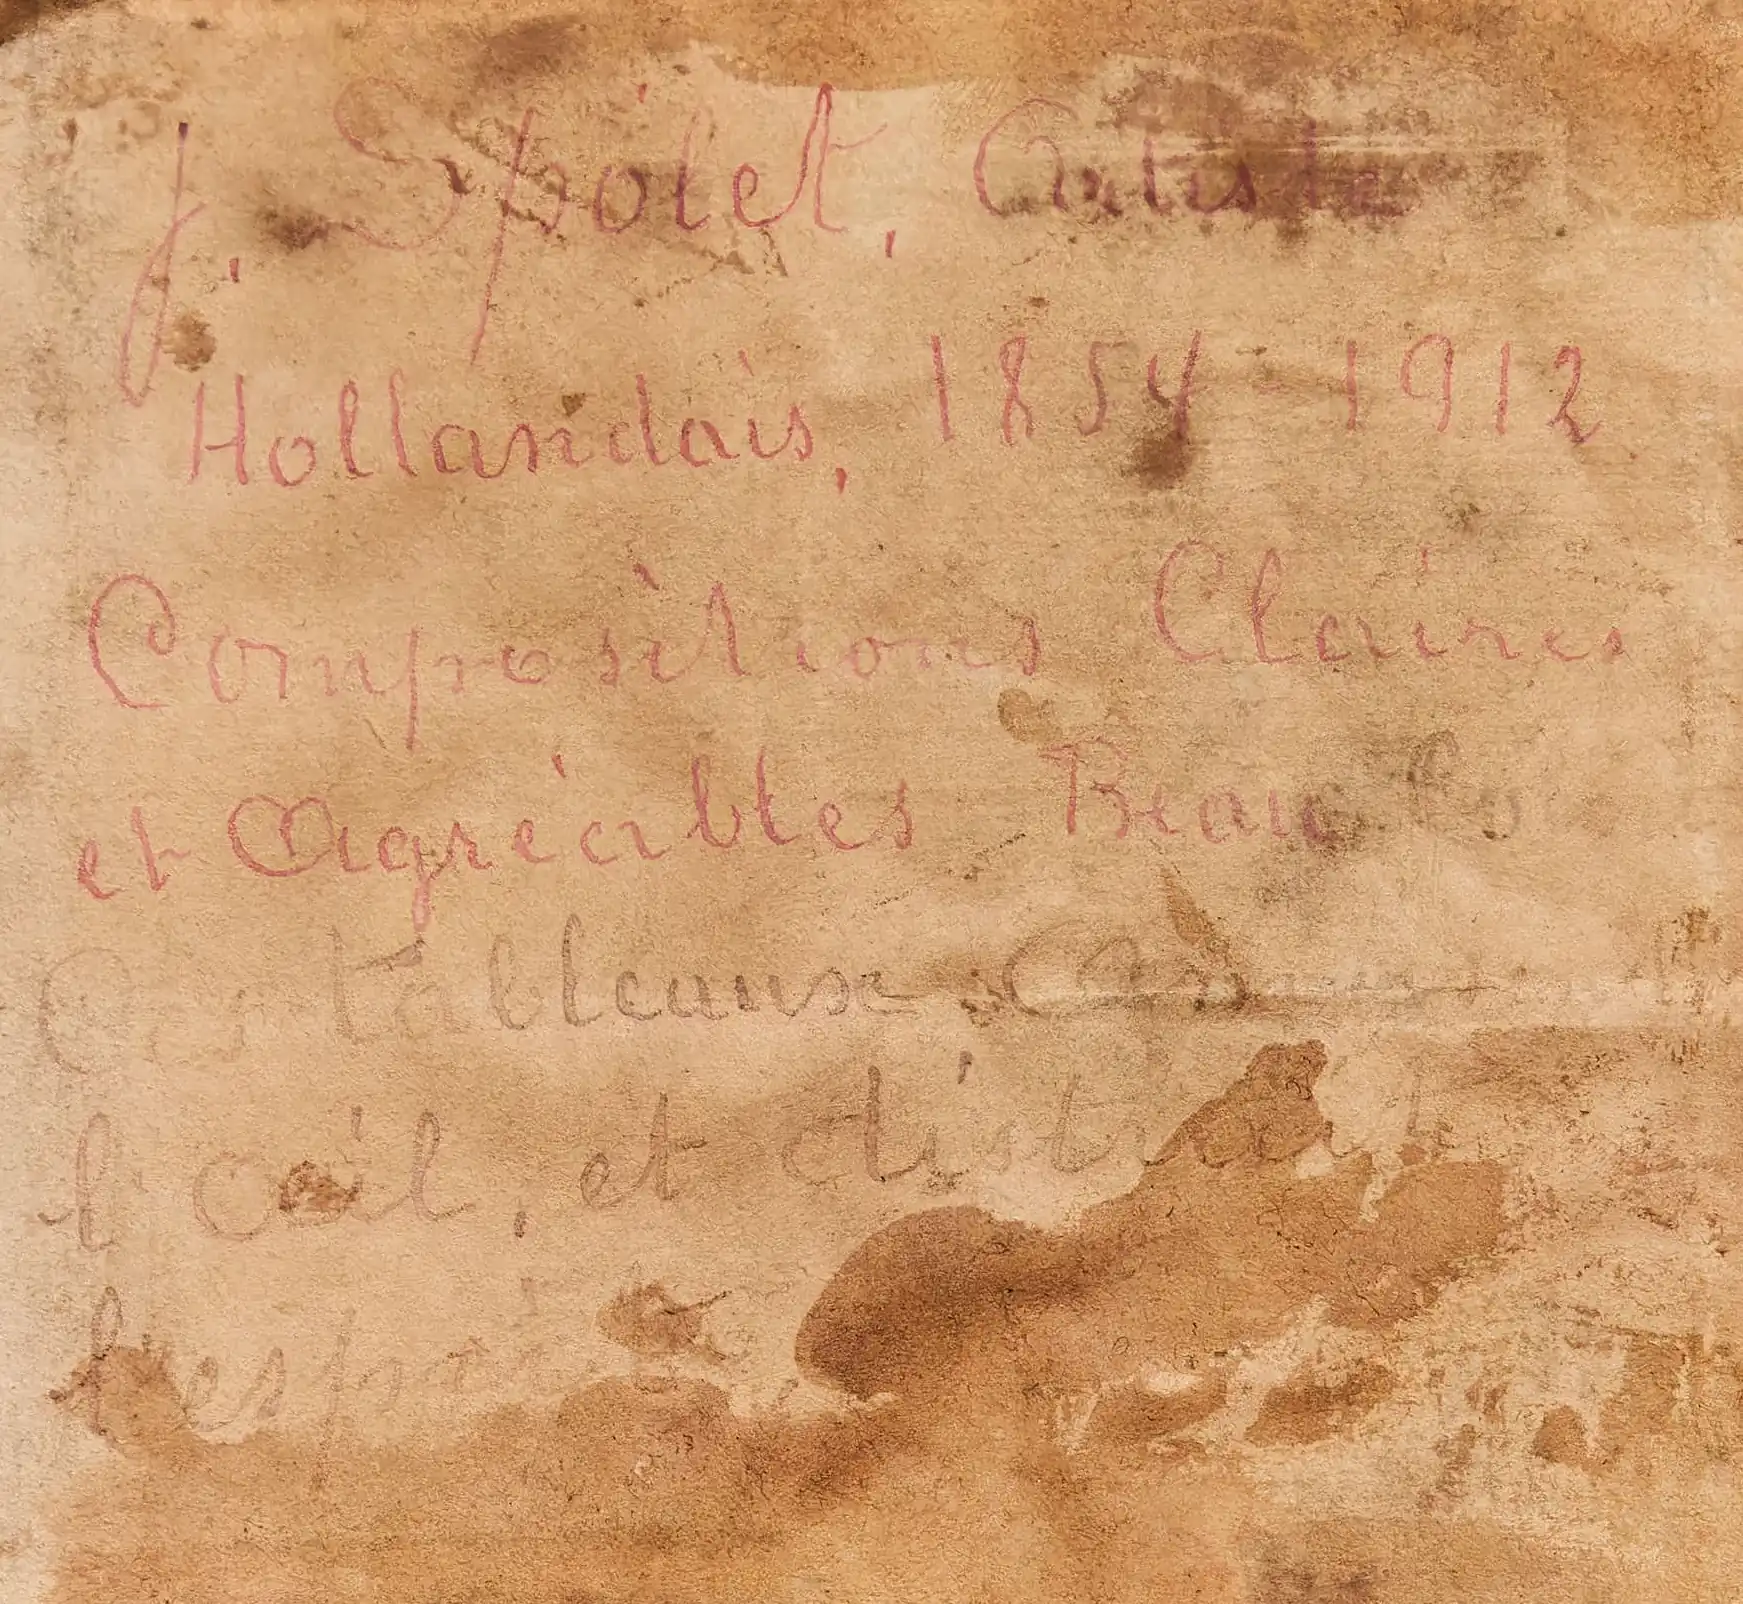 J. Spolet, Artiste
Hollandais, 1854-1912
Compositions Claires
et Agréables Beau
Ces tableaux
l'oeil, et distrait
l'esprit